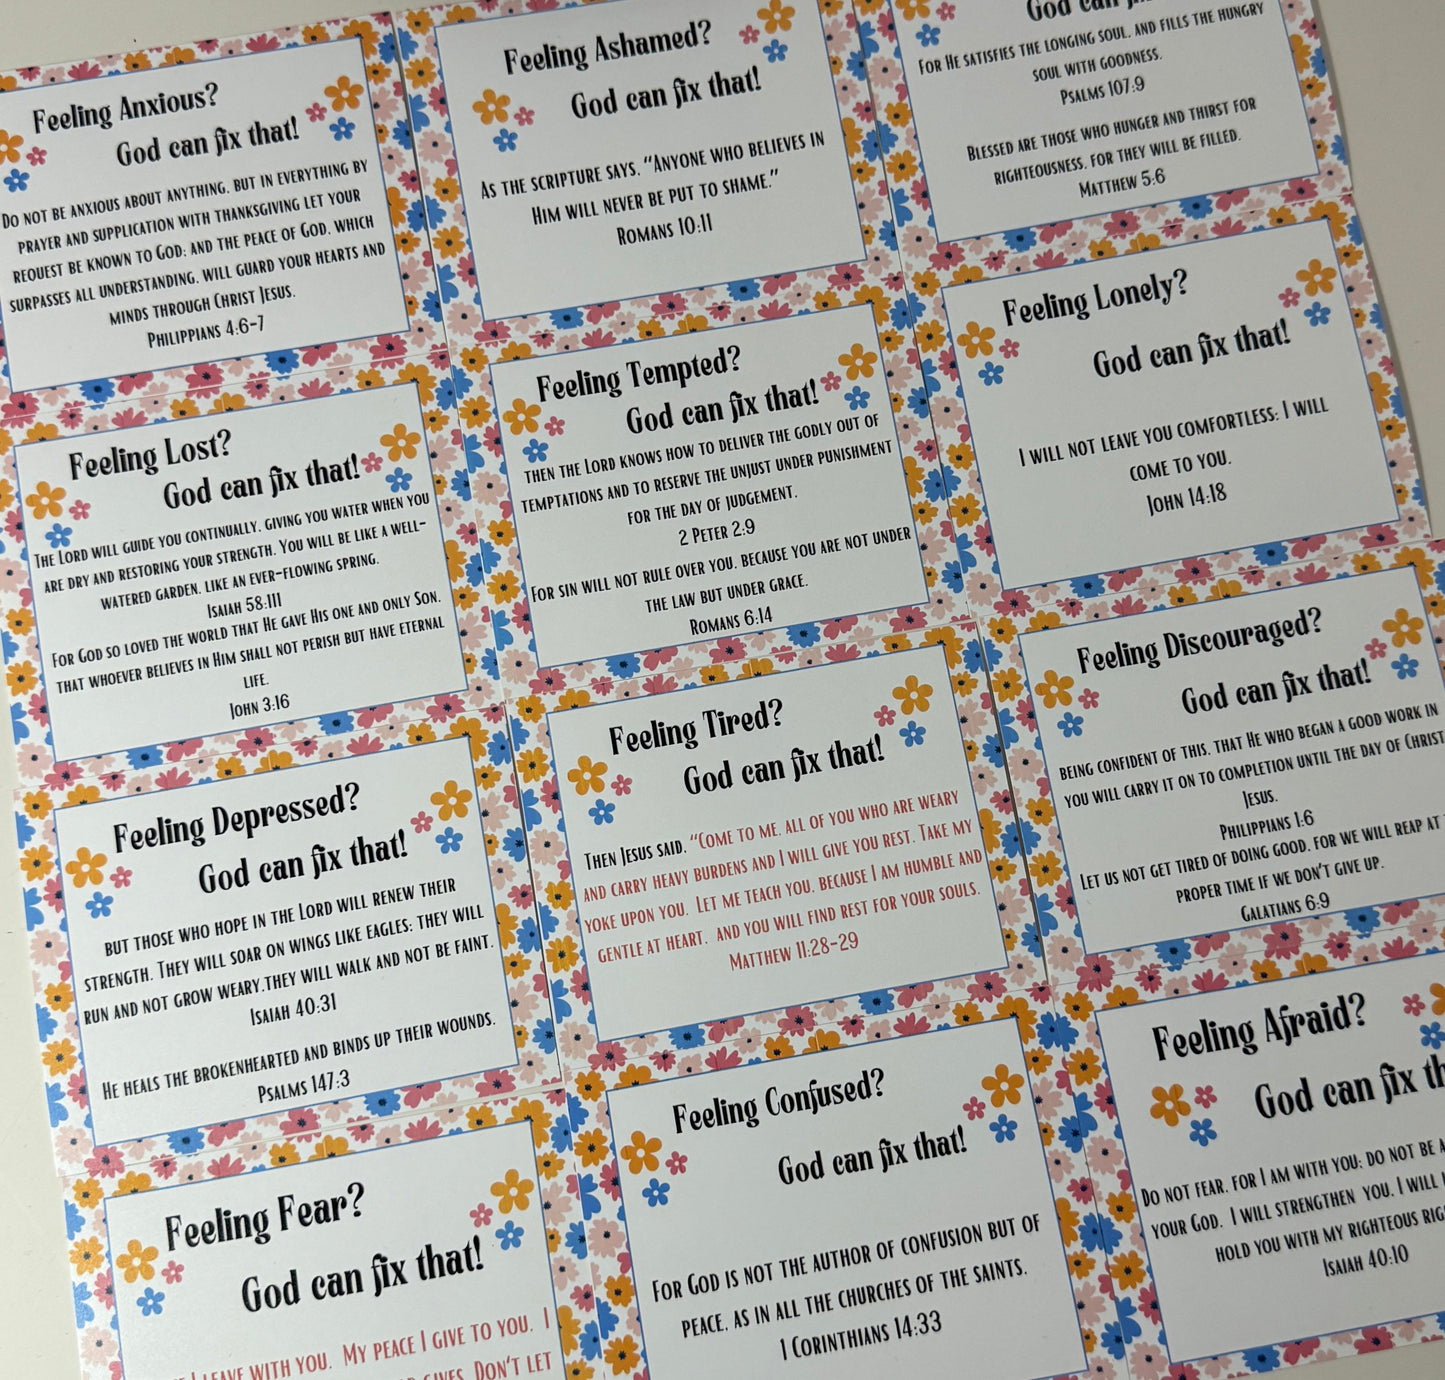 Feeling Anxious?
God can fix that!
Do not be anxious about anything, but in everything by
prayer and supplication with thanksgiving let your
request be known to God; and the peace of God, which
surpasses all understanding, will guard your hearts and
minds through Christ Jesus.
Philippians 4:6-7
Feeling Ashamed?
God can fix that!
As the scripture says, "Anyone who believes in
Him will never be put to shame."
Romans 10:11
God can
For He satisfies the longing soul, and fills the hungry
soul with goodness.
Psalms 107:9
Blessed are those who hunger and thirst for
righteousness, for they will be filled.
Matthew 5:6
Feeling Lost?
God can fix that!
The Lord will guide you continually, giving you water when you
are dry and restoring your strength. You will be like a well-
watered garden, like an ever-flowing spring.
Isaiah 58:111
For God so loved the world that He gave His one and only Son,
that whoever believes in Him shall not perish but have eternal
life.
John 3:16
Feeling Tempted?
God can fix that!
then the Lord knows how to deliver the godly out of
temptations and to reserve the unjust under punishment
for the day of judgement,
2 Peter 2:9
For sin will not rule over you, because you are not under
the law but under grace.
Romans 6:14
Feeling Lonely?
God can fix that!
I will not leave you comfortless: I will
come to you.
John 14:18
Feeling Depressed?
God can fix that!
but those who hope in the Lord will renew their
strength. They will soar on wings like eagles; they will
run and not grow weary,they will walk and not be faint.
Isaiah 40:31
He heals the brokenhearted and binds up their wounds.
Psalms 147:3
Feeling Tired?
God can fix that!
Then Jesus said, "Come to me, all of you who are weary
and carry heavy burdens and I will give you rest. Take my
yoke upon you. Let me teach you, because I am humble and
gentle at heart, and you will find rest for your souls.
Matthew 11:28-29
Feeling Discouraged?
God can fix that!
being confident of this, that He who began a good work in
you will carry it on to completion until the day of Christ
Jesus.
Philippians 1:6
Let us not get tired of doing good, for we will reap at
proper time if we don't give up.
Galatians 6:9
Feeling Fear?
God can fix that!
leave with you. My peace I give to you. I
gives. Don't let
Feeling Confused?
God can fix that!
For God is not the author of confusion but of
peace, as in all the churches of the saints.
1 Corinthians 14:33
Feeling Afraid?
God can fix th
Do not fear, for I am with you; do not be a
your God. I will strengthen you, I will
hold you with my righteous rig
Isaiah 40:10